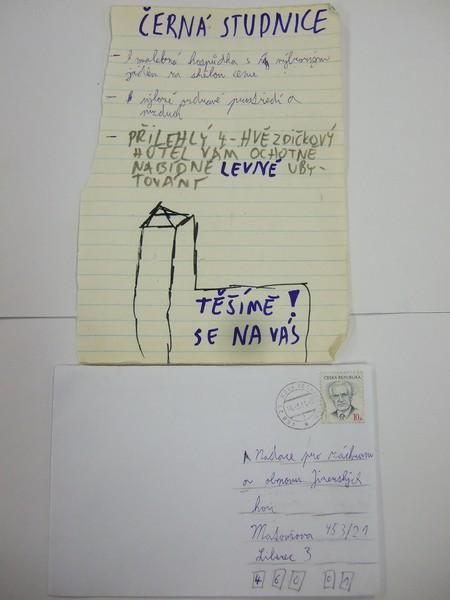 ČERNÁ STUDNICE
- malebná hospůdka s výborným
jídlem za skvělou cenu !
- zdravé prostředí a
vzduch
- PŘILEHLÝ 4-HVĚZDIČKOVÝ
HOTEL VÁM OCHOTNĚ
NABÍDNE LEVNÉ UBY-
TOVÁNÍ
TĚŠÍME !
SE NA VÁS
ČESKÁ REPUBLIKA
10
Nadace pro záchranu
a obnovu Jizerských
hor
Matoušova 453/21
Liberec 3
460 01